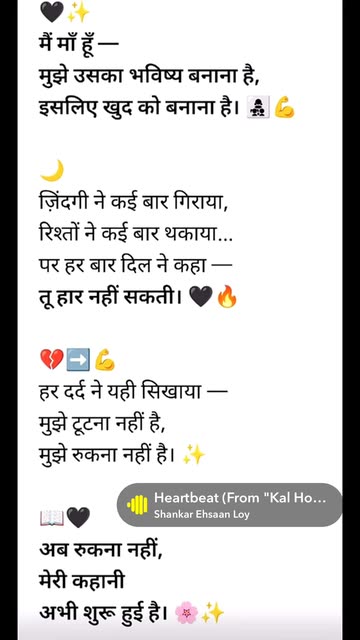 🖤✨
मैं माँ हूँ —
मुझे उसका भविष्य बनाना है,
इसलिए खुद को बनाना है। 👩‍👧💪
🌙
ज़िंदगी ने कई बार गिराया,
रिश्तों ने कई बार थकाया...
पर हर बार दिल ने कहा —
तू हार नहीं सकती। 🖤🔥
💔➡️💪
हर दर्द ने यही सिखाया —
मुझे टूटना नहीं है,
मुझे रुकना नहीं है। ✨
Heartbeat (From "Kal Ho...
Shankar Ehsaan Loy
📖🖤
अब रुकना नहीं,
मेरी कहानी
अभी शुरू हुई है। 🌸✨